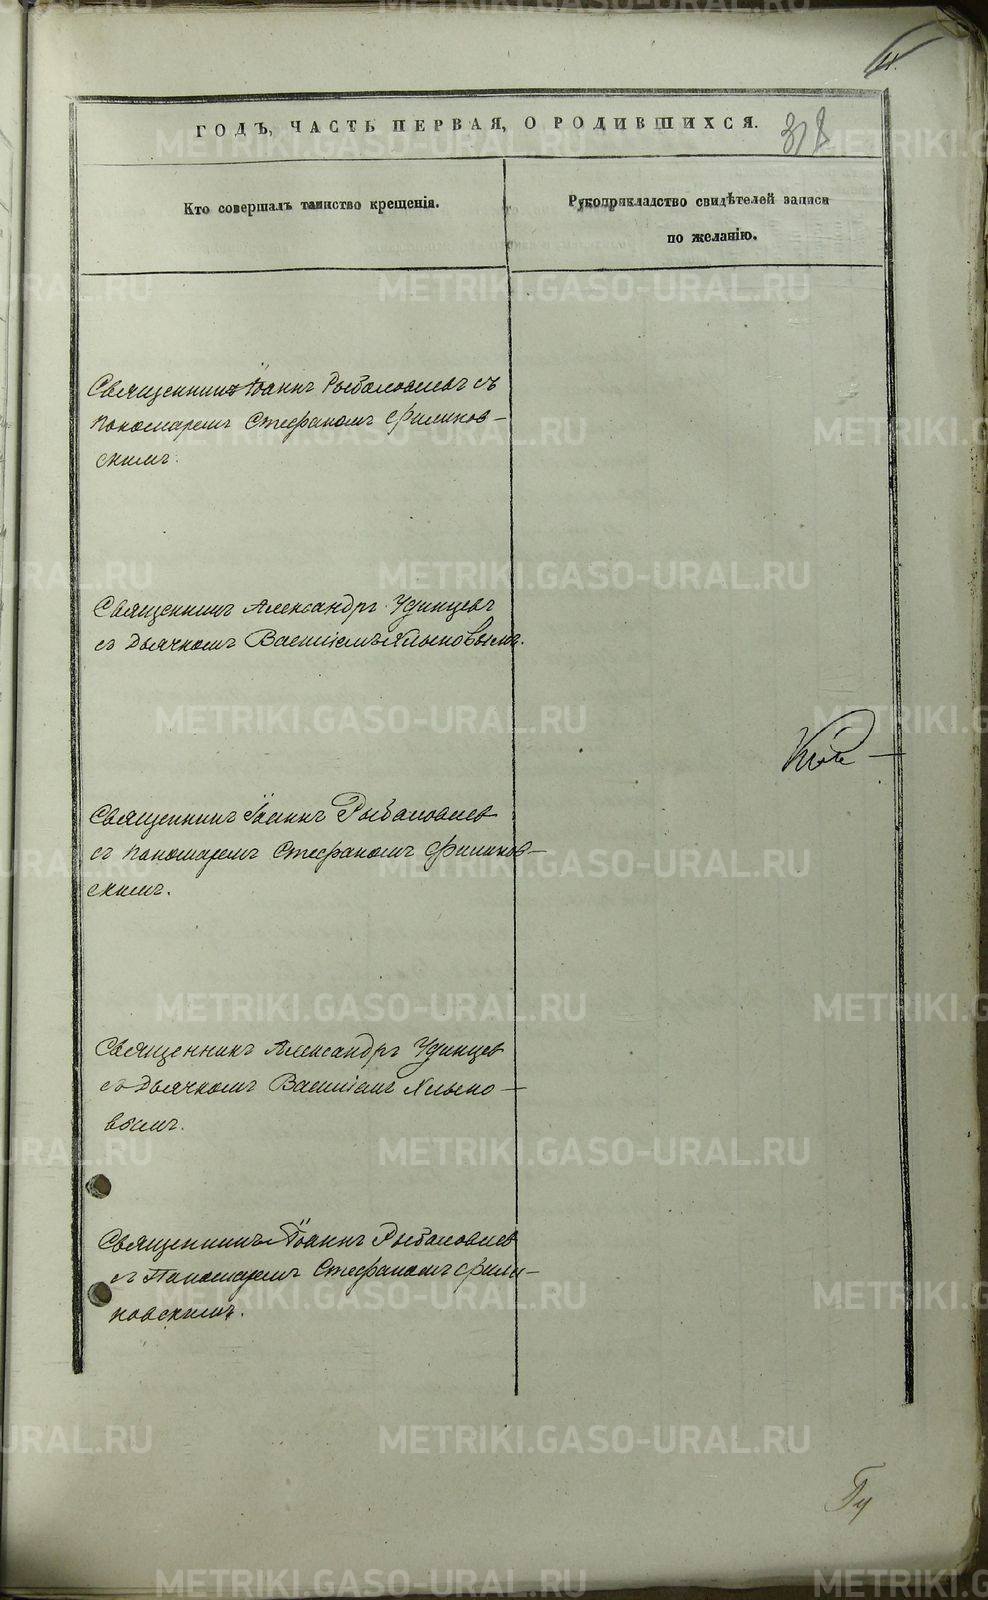 11.
ГОДЪ, ЧАСТЬ ПЕРВАЯ, О РОДИВШИХСЯ.
318
Кто совершалъ таинство крещенія.
Рукоприкладство свидѣтелей записи
по желанію.
Священникъ Іоаннъ Рыболовлевъ съ
пономаремъ Стефаномъ Филинов-
скимъ.
Священникъ Александръ Удинцевъ
съ дьячкомъ Василіемъ Хлыновымъ.
Священникъ Іоаннъ Рыболовлев
съ пономаремъ Стефаномъ Филинов-
скимъ.
Священникъ Александръ Удинцев
съ дьячкомъ Василіемъ Хлыно-
вымъ.
Священникъ Іоаннъ Рыболовлев
съ Пономаремъ Стефаномъ Фили-
новскимъ.
METRIKI.GASO-URAL.RU